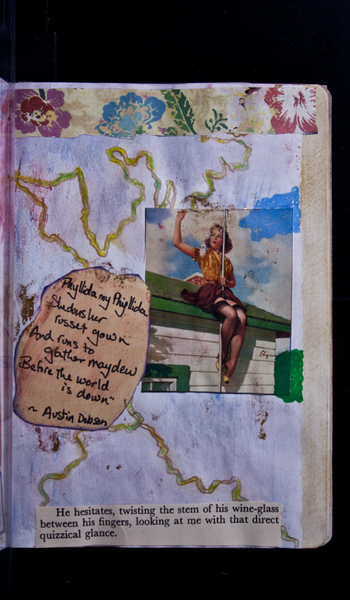 Phyllida my Phyllida
She dons her
russet gown
And runs to
gather maydew
Before the world
is down"
~ Austin Dobson
He hesitates, twisting the stem of his wine-glass
between his fingers, looking at me with that direct
quizzical glance.